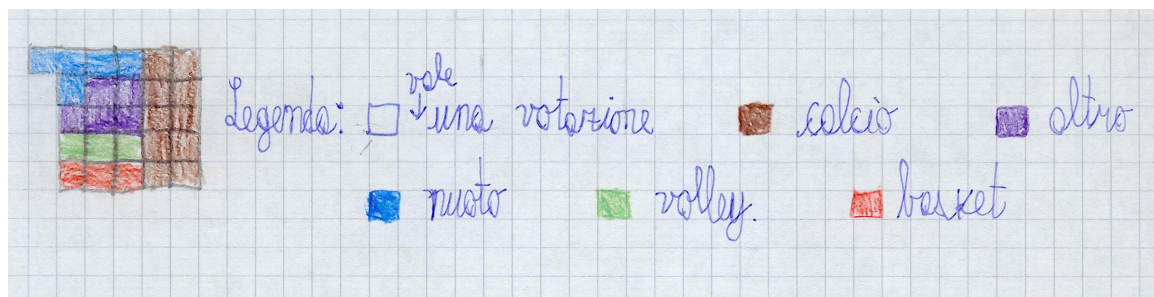 Legenda: vale
↓ una votazione calcio altro
nuoto volley. basket